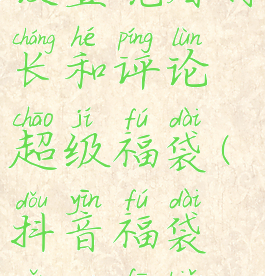 cháng hé píng lùn
长和评论
chāo jí fú dài
超级福袋(
dǒu yīn fú dài
抖音福袋